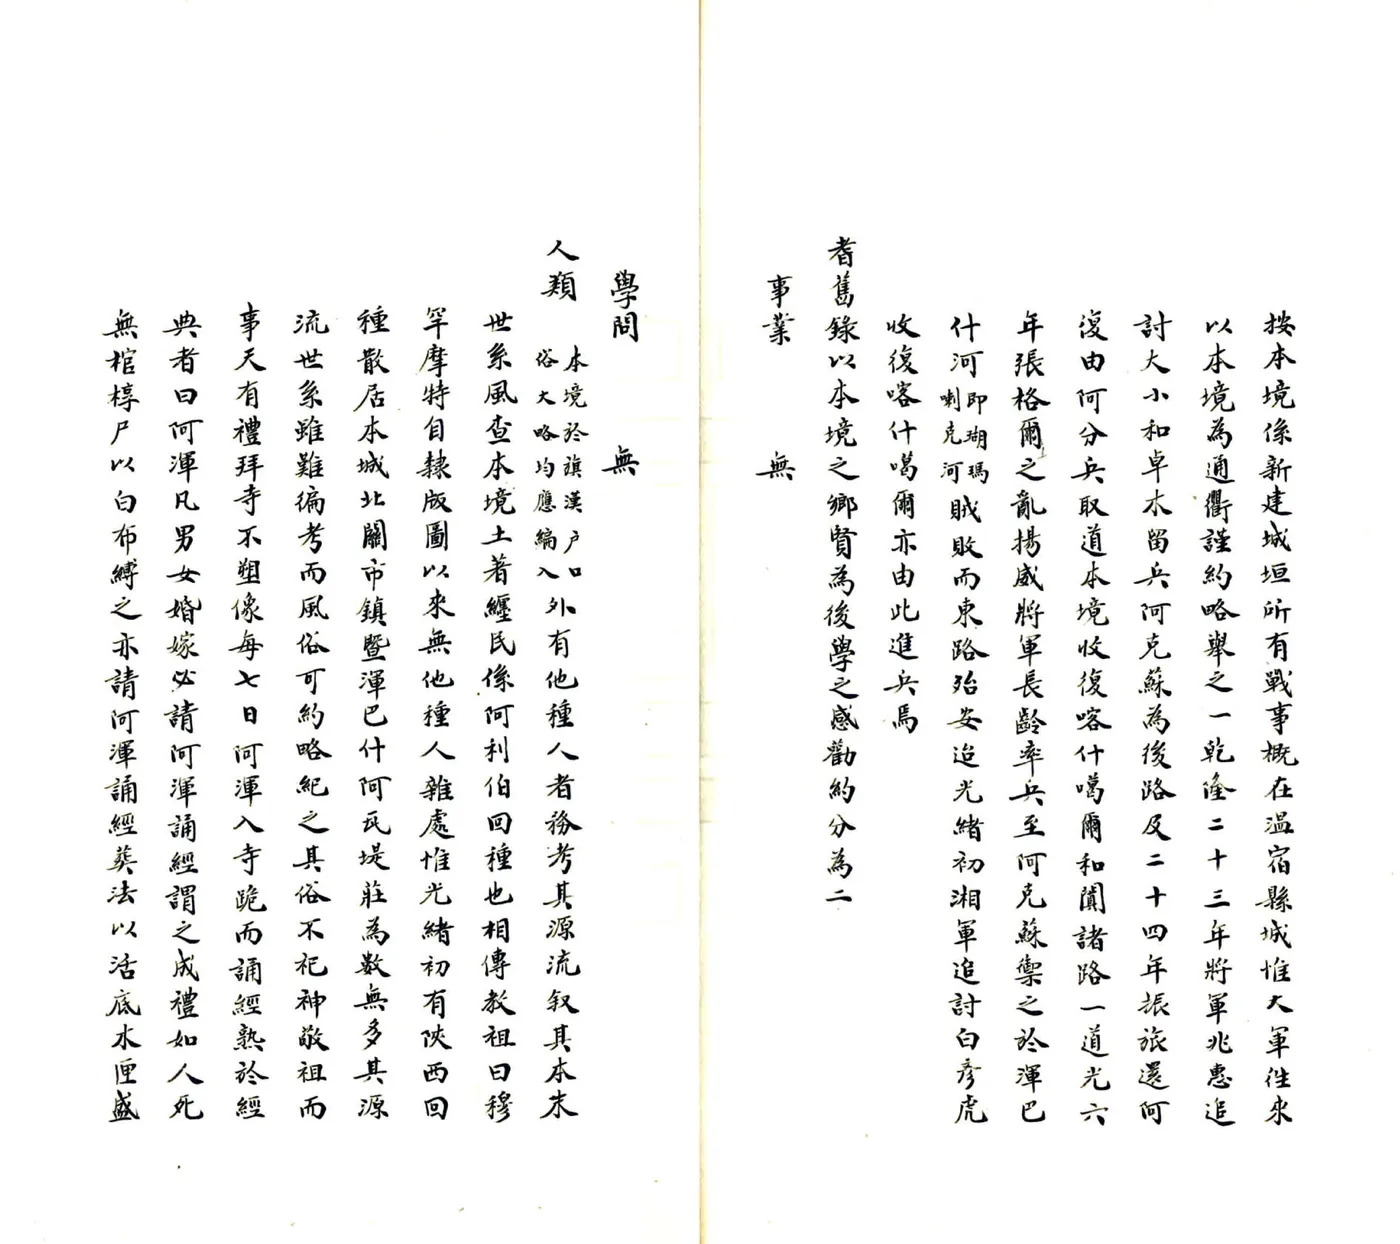 按本境係新建城垣所有戰事概在温宿縣城惟大軍徃来
以本境為通衢謹約略舉之一乾隆二十三年將軍兆惠追
討大小和卓木留兵阿克蘇為後路及二十四年振旅還阿
復由阿分兵取道本境收復喀什噶爾和闐諸路一道光六
年張格爾之亂揚威將軍長齡率兵至阿克蘇禦之於渾巴
什河即瑚瑪喇克河賊敗而東路始安迨光緒初湘軍追討白彦虎
收復喀什噶爾亦由此進兵焉
耆舊錄以本境之鄉賢為後學之感勸約分為二
事業　無
學問　無
人類本境於旗漢户口俗大略均應編入外有他種人者務考其源流叙其本末
世系風查本境土著纏民係阿利伯回種也相傳教祖曰穆
罕摩特自隸版圖以來無他種人雜處惟光緒初有陝西回
種散居本城北關市鎮暨渾巴什阿瓦堤莊為数無多其源
流世系雖難徧考而風俗可約略紀之其俗不祀神敬祖而
事天有禮拜寺不塑像每七日阿渾入寺跪而誦經熟於經
典者曰阿渾凡男女婚嫁必請阿渾誦經謂之成禮如人死
無棺椁尸以白布縛之亦請阿渾誦經葬法以活底木匣盛